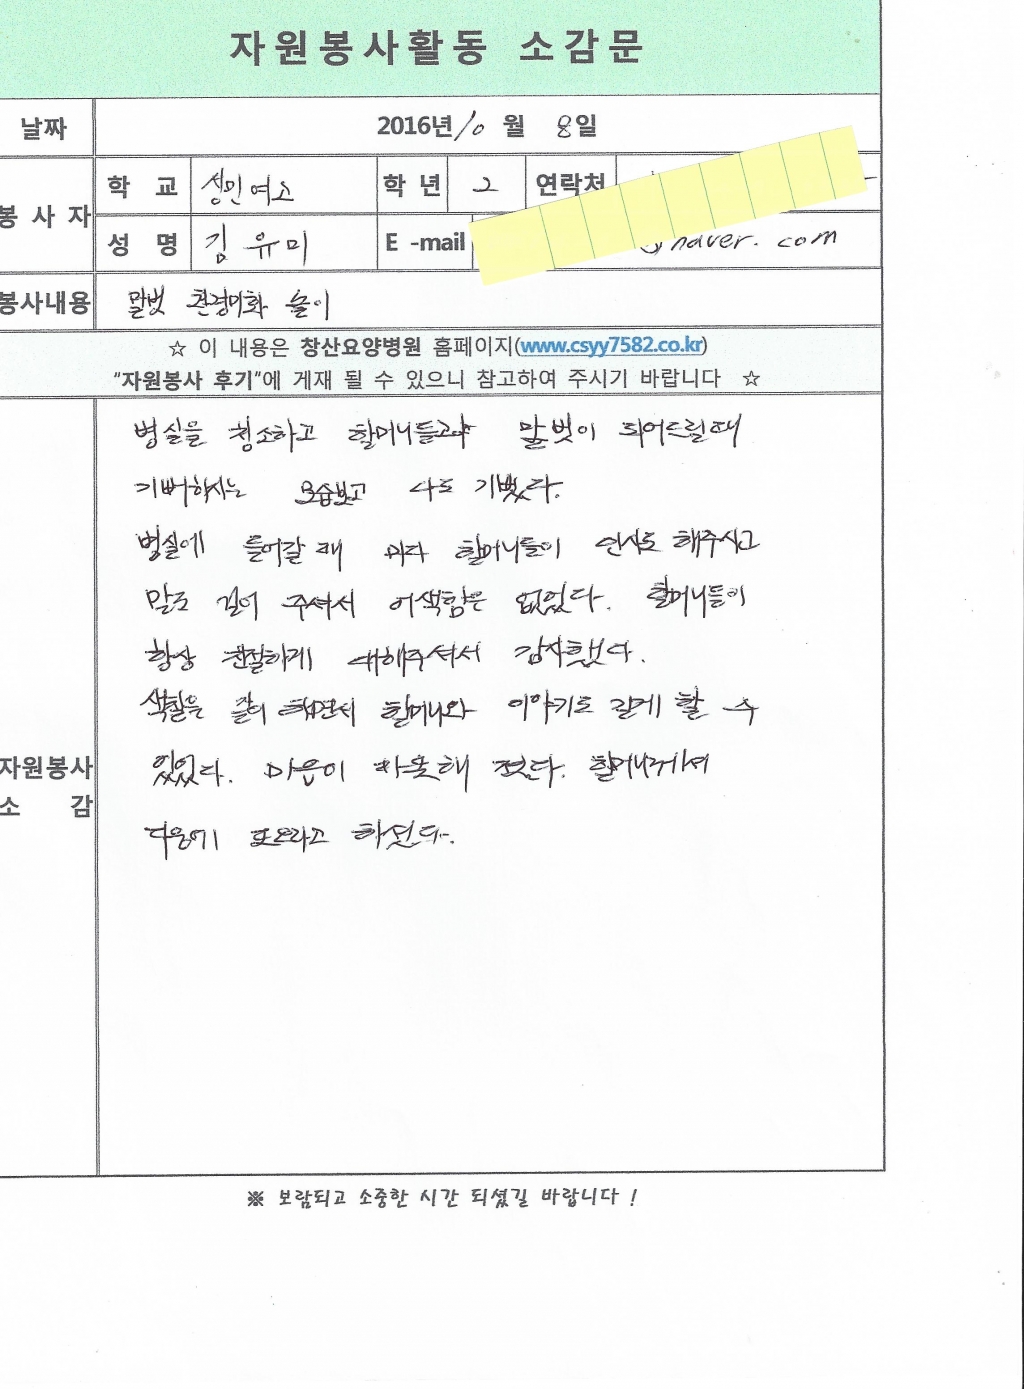 자원봉사활동 소감문
날짜 2016년 10 월 8일
봉 사 자
학 교 성민여고 학 년 2 연락처
성 명 김유미 E -mail @naver.com
봉사내용 말벗 환경미화 놀이
☆ 이 내용은 창산요양병원 홈페이지(www.csyy7582.co.kr)
"자원봉사 후기"에 게재 될 수 있으니 참고하여 주시기 바랍니다 ☆
자원봉사
소 감
병실을 청소하고 할머니들과 말벗이 되어드릴때
기뻐하시는 모습보고 나도 기뻤다.
병실에 들어갈 때 마다 할머니들이 인사도 해주시고
말도 걸어 주셔서 어색함은 없었다. 할머니들이
항상 친절하게 대해주셔서 감사했다.
색칠을 같이 하면서 할머니와 이야기도 길게 할 수
있었다. 마음이 따뜻해 졌다. 할머니께서
다음에 또오라고 하셨다.
※ 보람되고 소중한 시간 되셨길 바랍니다 !